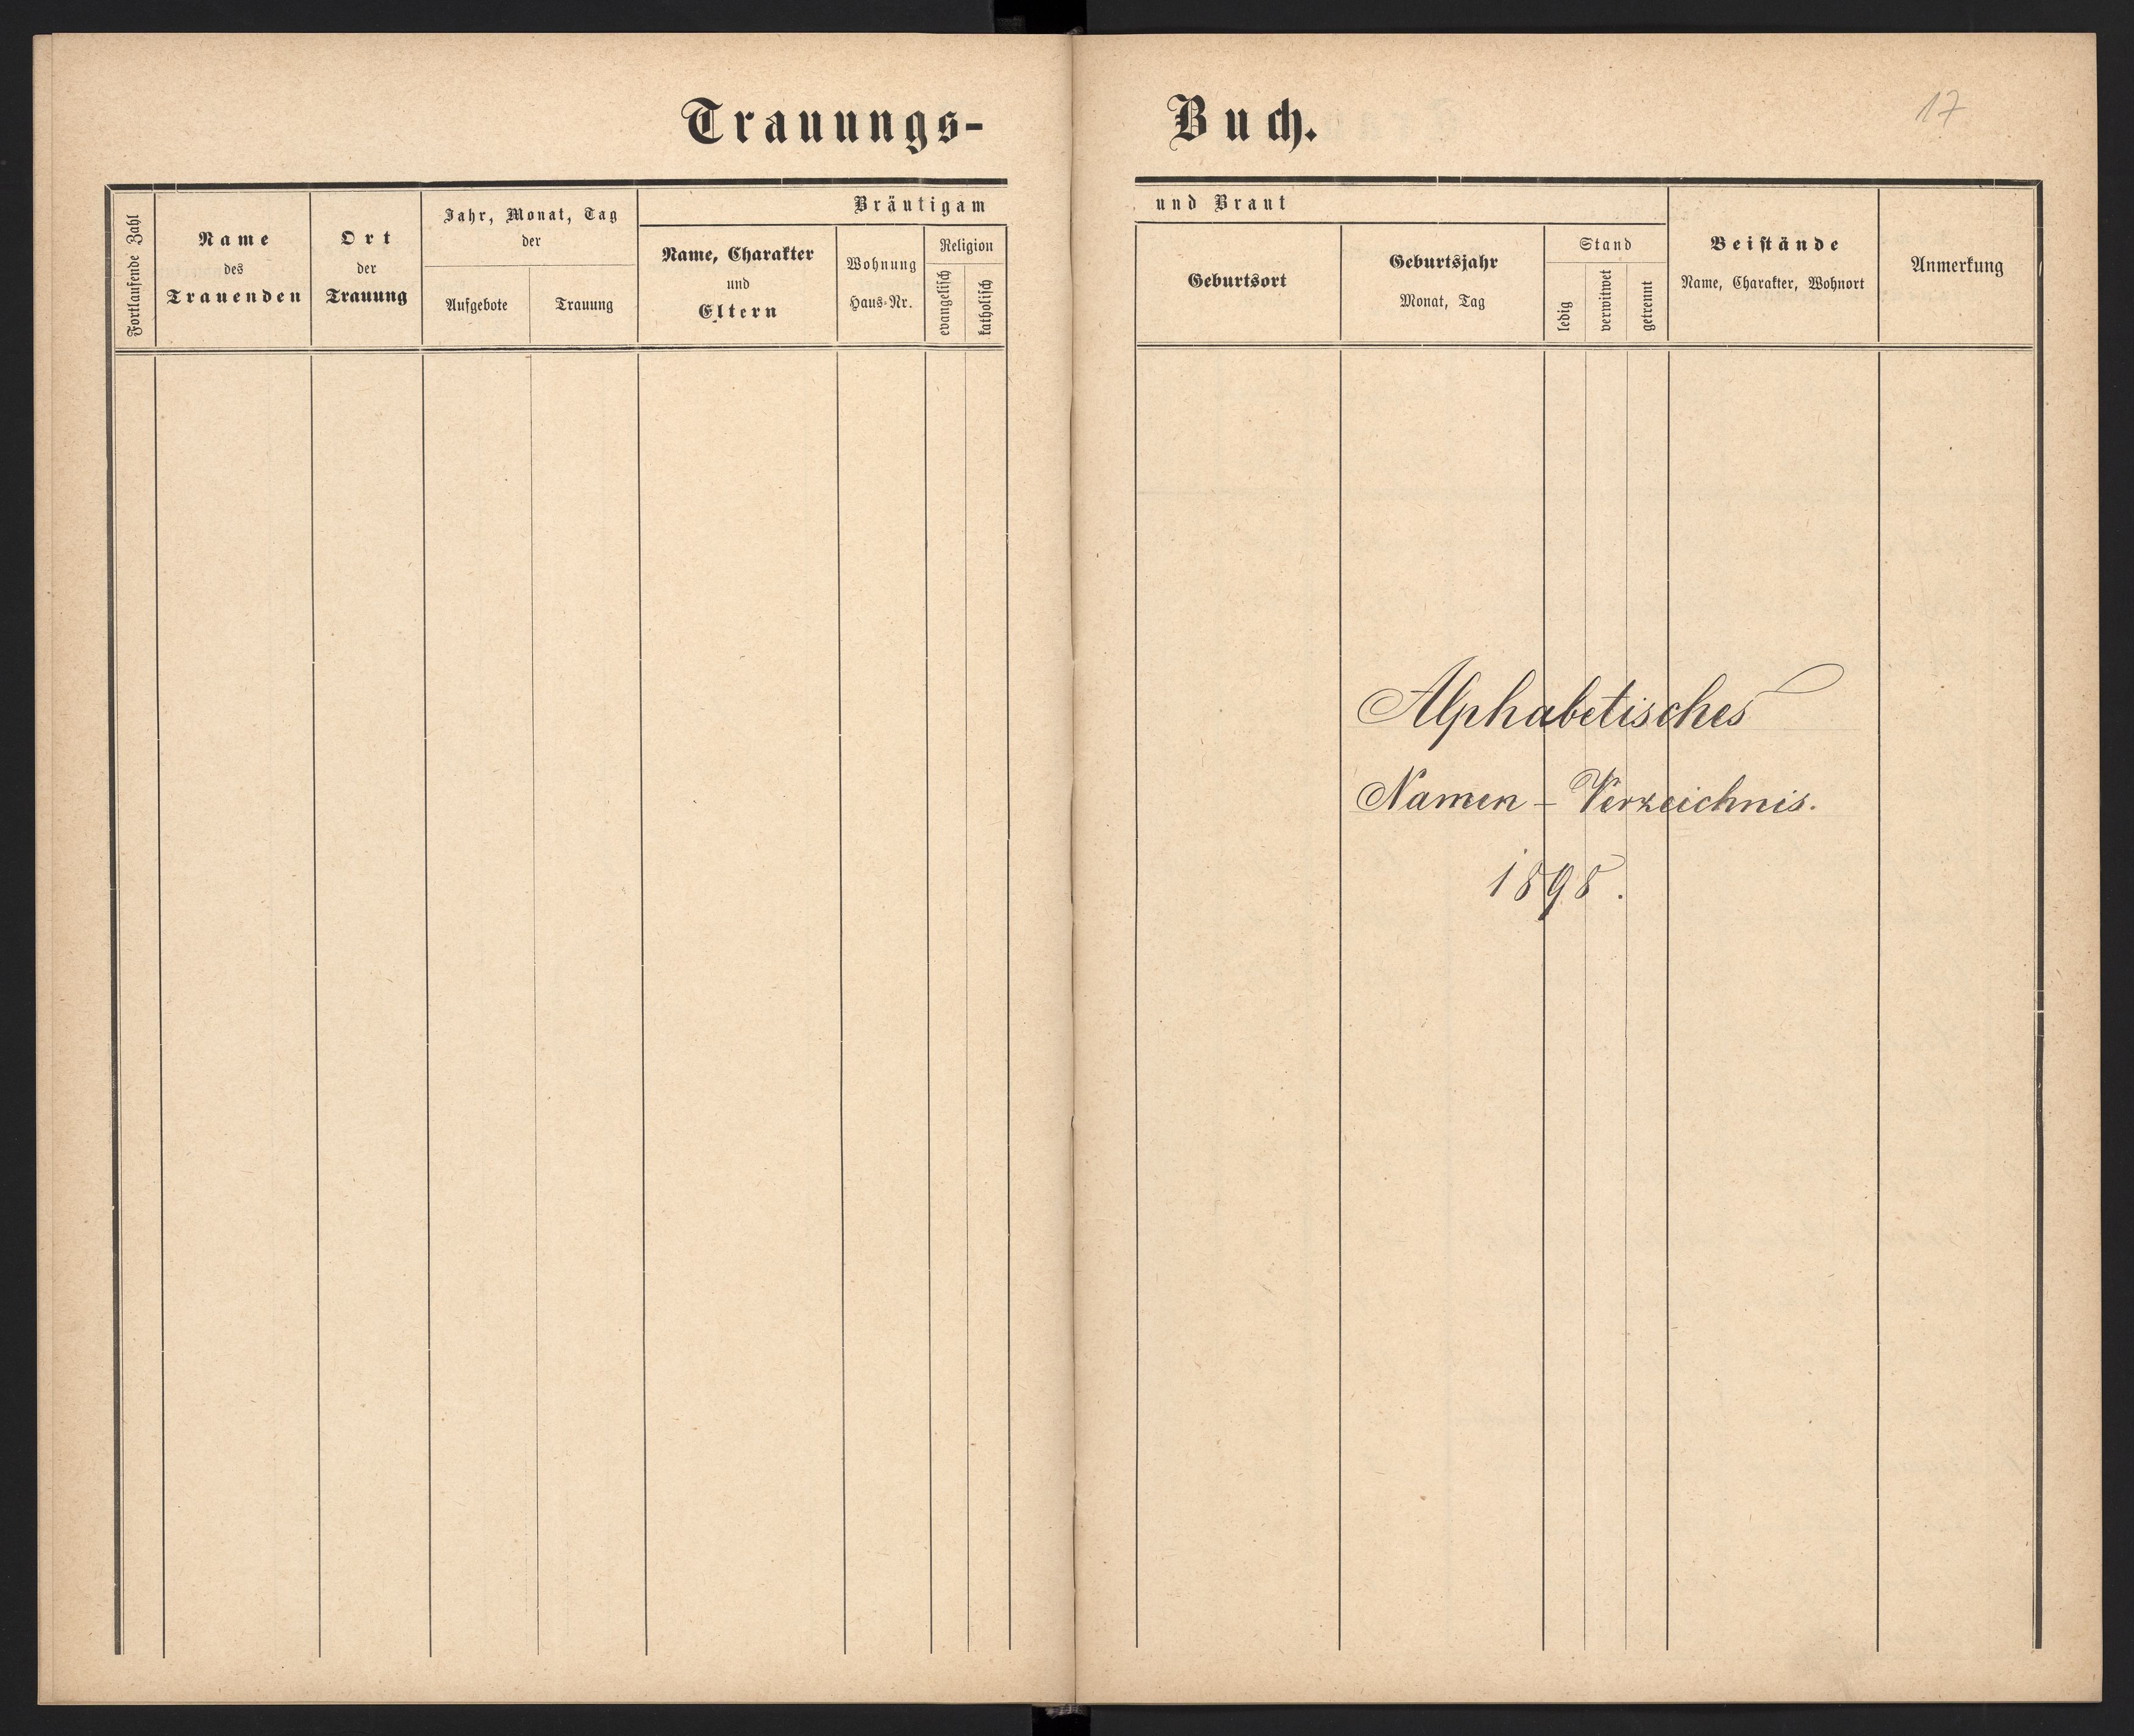 Trauungs-
Fortlaufende Zahl
Name
des
Trauenden
Ort
der
Trauung
Jahr, Monat, Tag
der
Aufgebote
Trauung
Bräutigam
Name, Charakter
und
Eltern
Wohnung
Haus-Nr.
Religion
evangelisch
katholisch
Buch.
17
und Braut
Geburtsort
Geburtsjahr
Monat, Tag
Stand
ledig
verwitwet
getrennt
Beistände
Name, Charakter, Wohnort
Anmerkung
Alphabetisches
Namen - Verzeichnis.
1898.